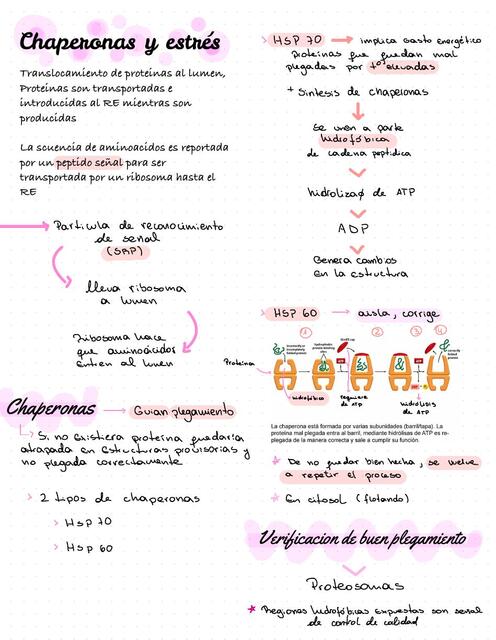 Chaperonas y estrés
Translocamiento de proteínas al lumen,
Proteínas son transportadas e
introducidas al RE mientras son
producidas
La scuencia de aminoacidos es reportada
por un peptido señal para ser
transportada por un ribosoma hasta el
RE
Particula de reconocimiento
de señal
(SRP)
lleva ribosoma
a lumen
Ribosoma hace
que aminoácidos
entren al lumen
Chaperonas → Guian plegamiento
Si no existiera proteina quedaría
atrapada en Estructuras provisorias y
no plegada correctamente
> 2 tipos de chaperonas
> HSP 70
> HSP 60
> HSP 70 → implica gasto energético
Proteinas que quedan mal
plegadas por t° elevadas
+ Sintesis de chaperonas
Se unen a parte
hidrofóbica
de cadena peptidica
hidroliza ∅ de ATP
ADP
Genera cambios
en la estructura
> HSP 60 → aisla, corrige
1 2 3 4
incorrectly or
incompletely
folded protein
hydrophobic
protein-binding
sites
GroES cap
correctly
folded
protein
Proteina
hidrofóbico
requiere
de ATP
hidrolisis
de ATP
La chaperona está formada por varias subunidades (barril/tapa). La
proteína mal plegada entra al barril, mediante hidrólisas de ATP es re-
plegada de la manera correcta y sale a cumplir su función.
* De no quedar bien hecha, se vuelve
a repetir el proceso
* En citosol (flotando)
Verificacion de buen plegamiento
Proteosomas
* Regiones hidrofóbicas expuestas son señal
de control de calidad